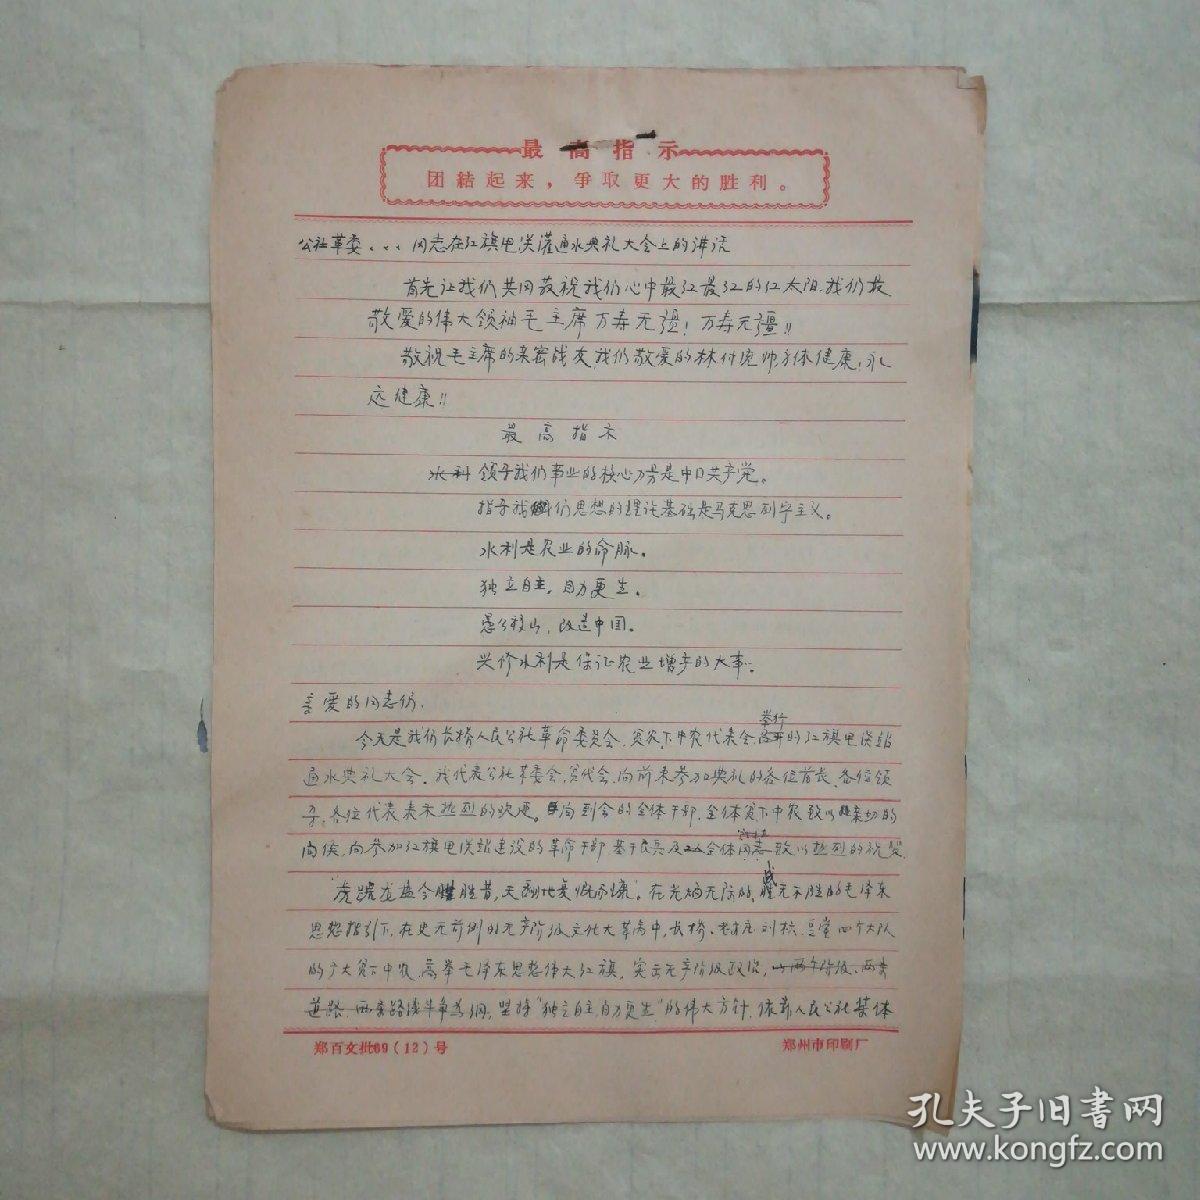 最高指示
团結起来，爭取更大的胜利。
公社革委、、、同志在红旗电灌通水典礼大会上的讲话
首先让我们共同敬祝我们心中最红最红的红太阳，我们最
敬爱的伟大领袖毛主席万寿无疆！万寿无疆！！
敬祝毛主席的亲密战友，我们敬爱的林付统帅身体健康，永
远健康！！
最高指示
水利 领导我们事业的核心力量是中国共产党。
指导我们思想的理论基础是马克思列宁主义。
水利是农业的命脉。
独立自主，自力更生。
愚公移山，改造中国。
兴修水利是保证农业增产的大事。
亲爱的同志们，
举行
今天是我们长桥人民公社革命委员会，贫农下中农代表会，召开的红旗电灌站
通水典礼大会。我代表公社革委会，贫代会，向前来参加典礼的各位首长、各位领
导、各位代表表示热烈的欢迎。向到会的全体干部，全体贫下中农致以亲切的
问候，向参加红旗电灌站建设的革命干部 基干民兵及全体同志致以热烈的祝贺。
虎踞龙盘今胜昔，天翻地复慨而慷。在光焰无际的，战无不胜的毛泽东
思想指引下，在史无前例的无产阶级文化大革命中，长桥、刘村、四个大队
的广大贫下中农，高举毛泽东思想伟大红旗，突出无产阶级政治，两个阶级、两条
道路，两条路线斗争为纲，坚持“独立自主，自力更生”的伟大方针，依靠人民公社集体
郑百文批69（12）号
郑州市印刷厂
孔夫子旧書网
www.kongfz.com